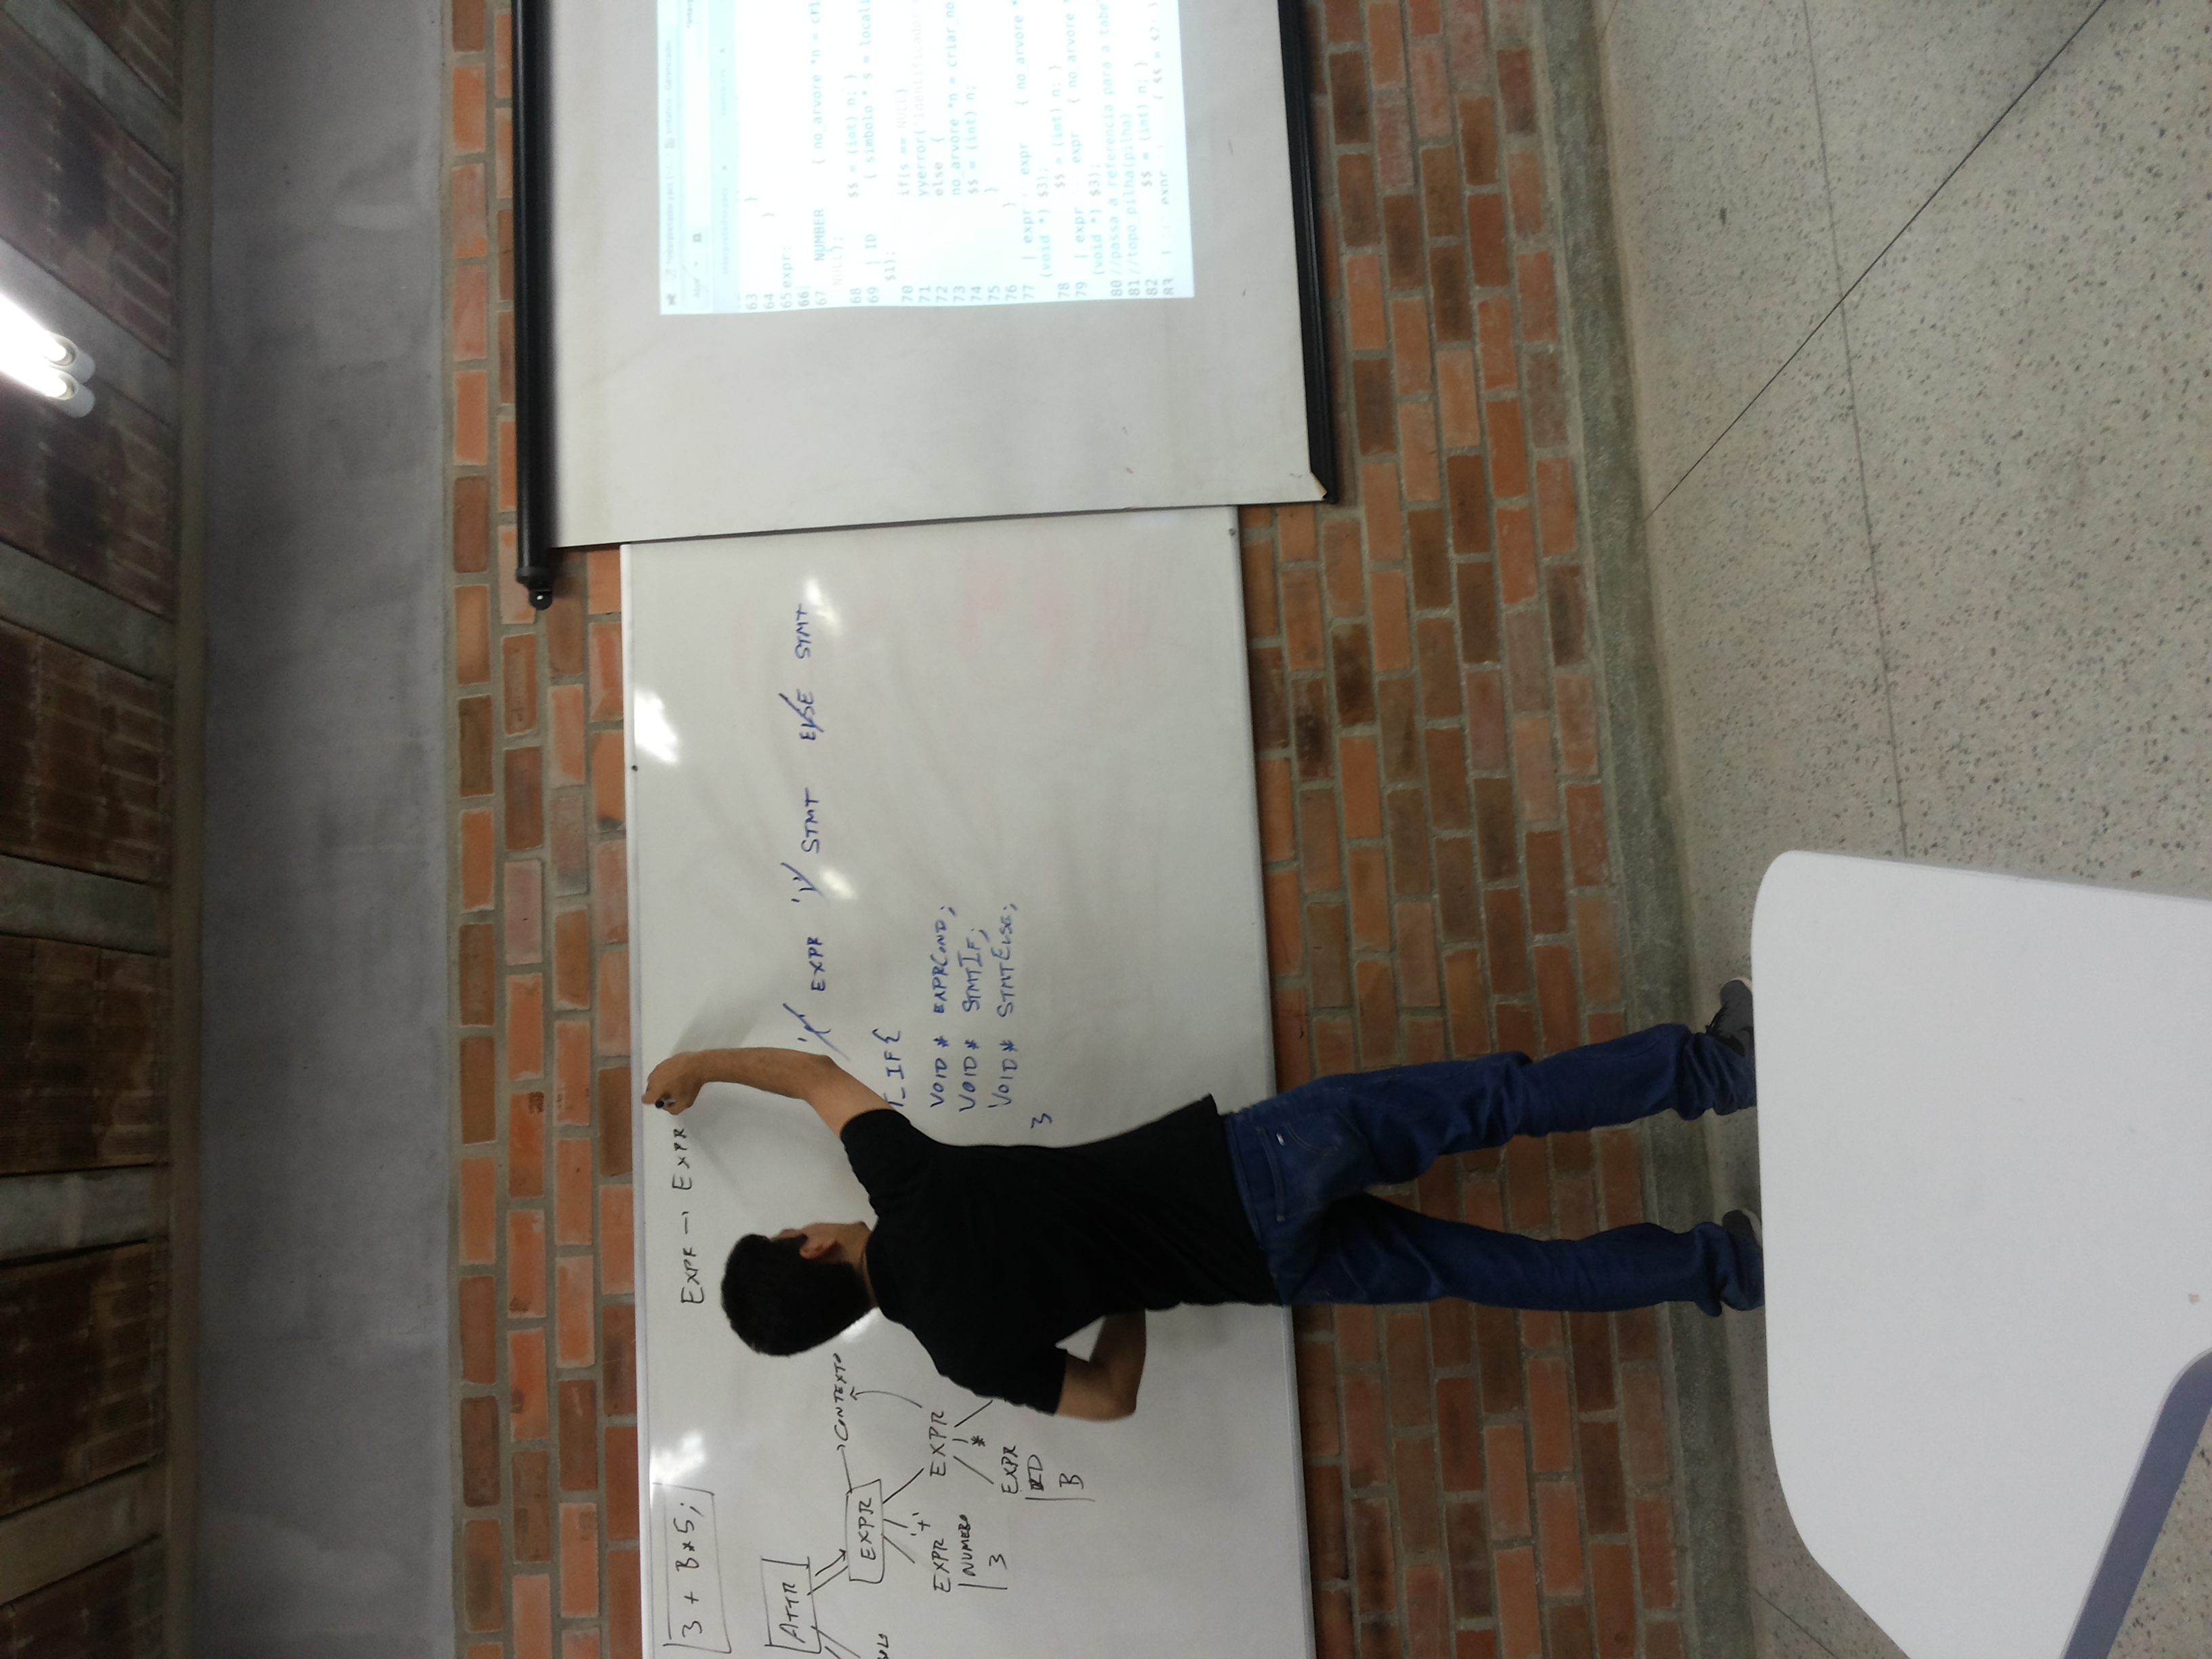 3 + B*5;
EXPR → EXPR
ATTR
EXPR
CONTEXTO
EXPR '+' EXPR
NUMERO
3
*
EXPR
ID
B
'(' EXPR ')' STMT ELSE STMT
T_IF{
VOID* EXPRCOND;
VOID* STMTIF;
VOID* STMTELSE;
}
63 }
64 }
65 expr:
66
67 NUMBER { no_arvore *n =
NULL);
68 $$ = (int) n; }
69 | ID { simbolo * s =
$1);
70 if(s == NULL)
71 yyerror("Identificador
72 else {
73 no_arvore *n =
74 $$ = (int) n;
75 }
76 }
77 | expr expr { no_arvore *
(void *) $3);
78 $$ = (int) n; }
79 | expr expr { no_arvore *
(void *) $3);
80 //passa a referencia para a
81 //topo_pilha(pilha)
82 $$ = (int) n; }
83 | expr